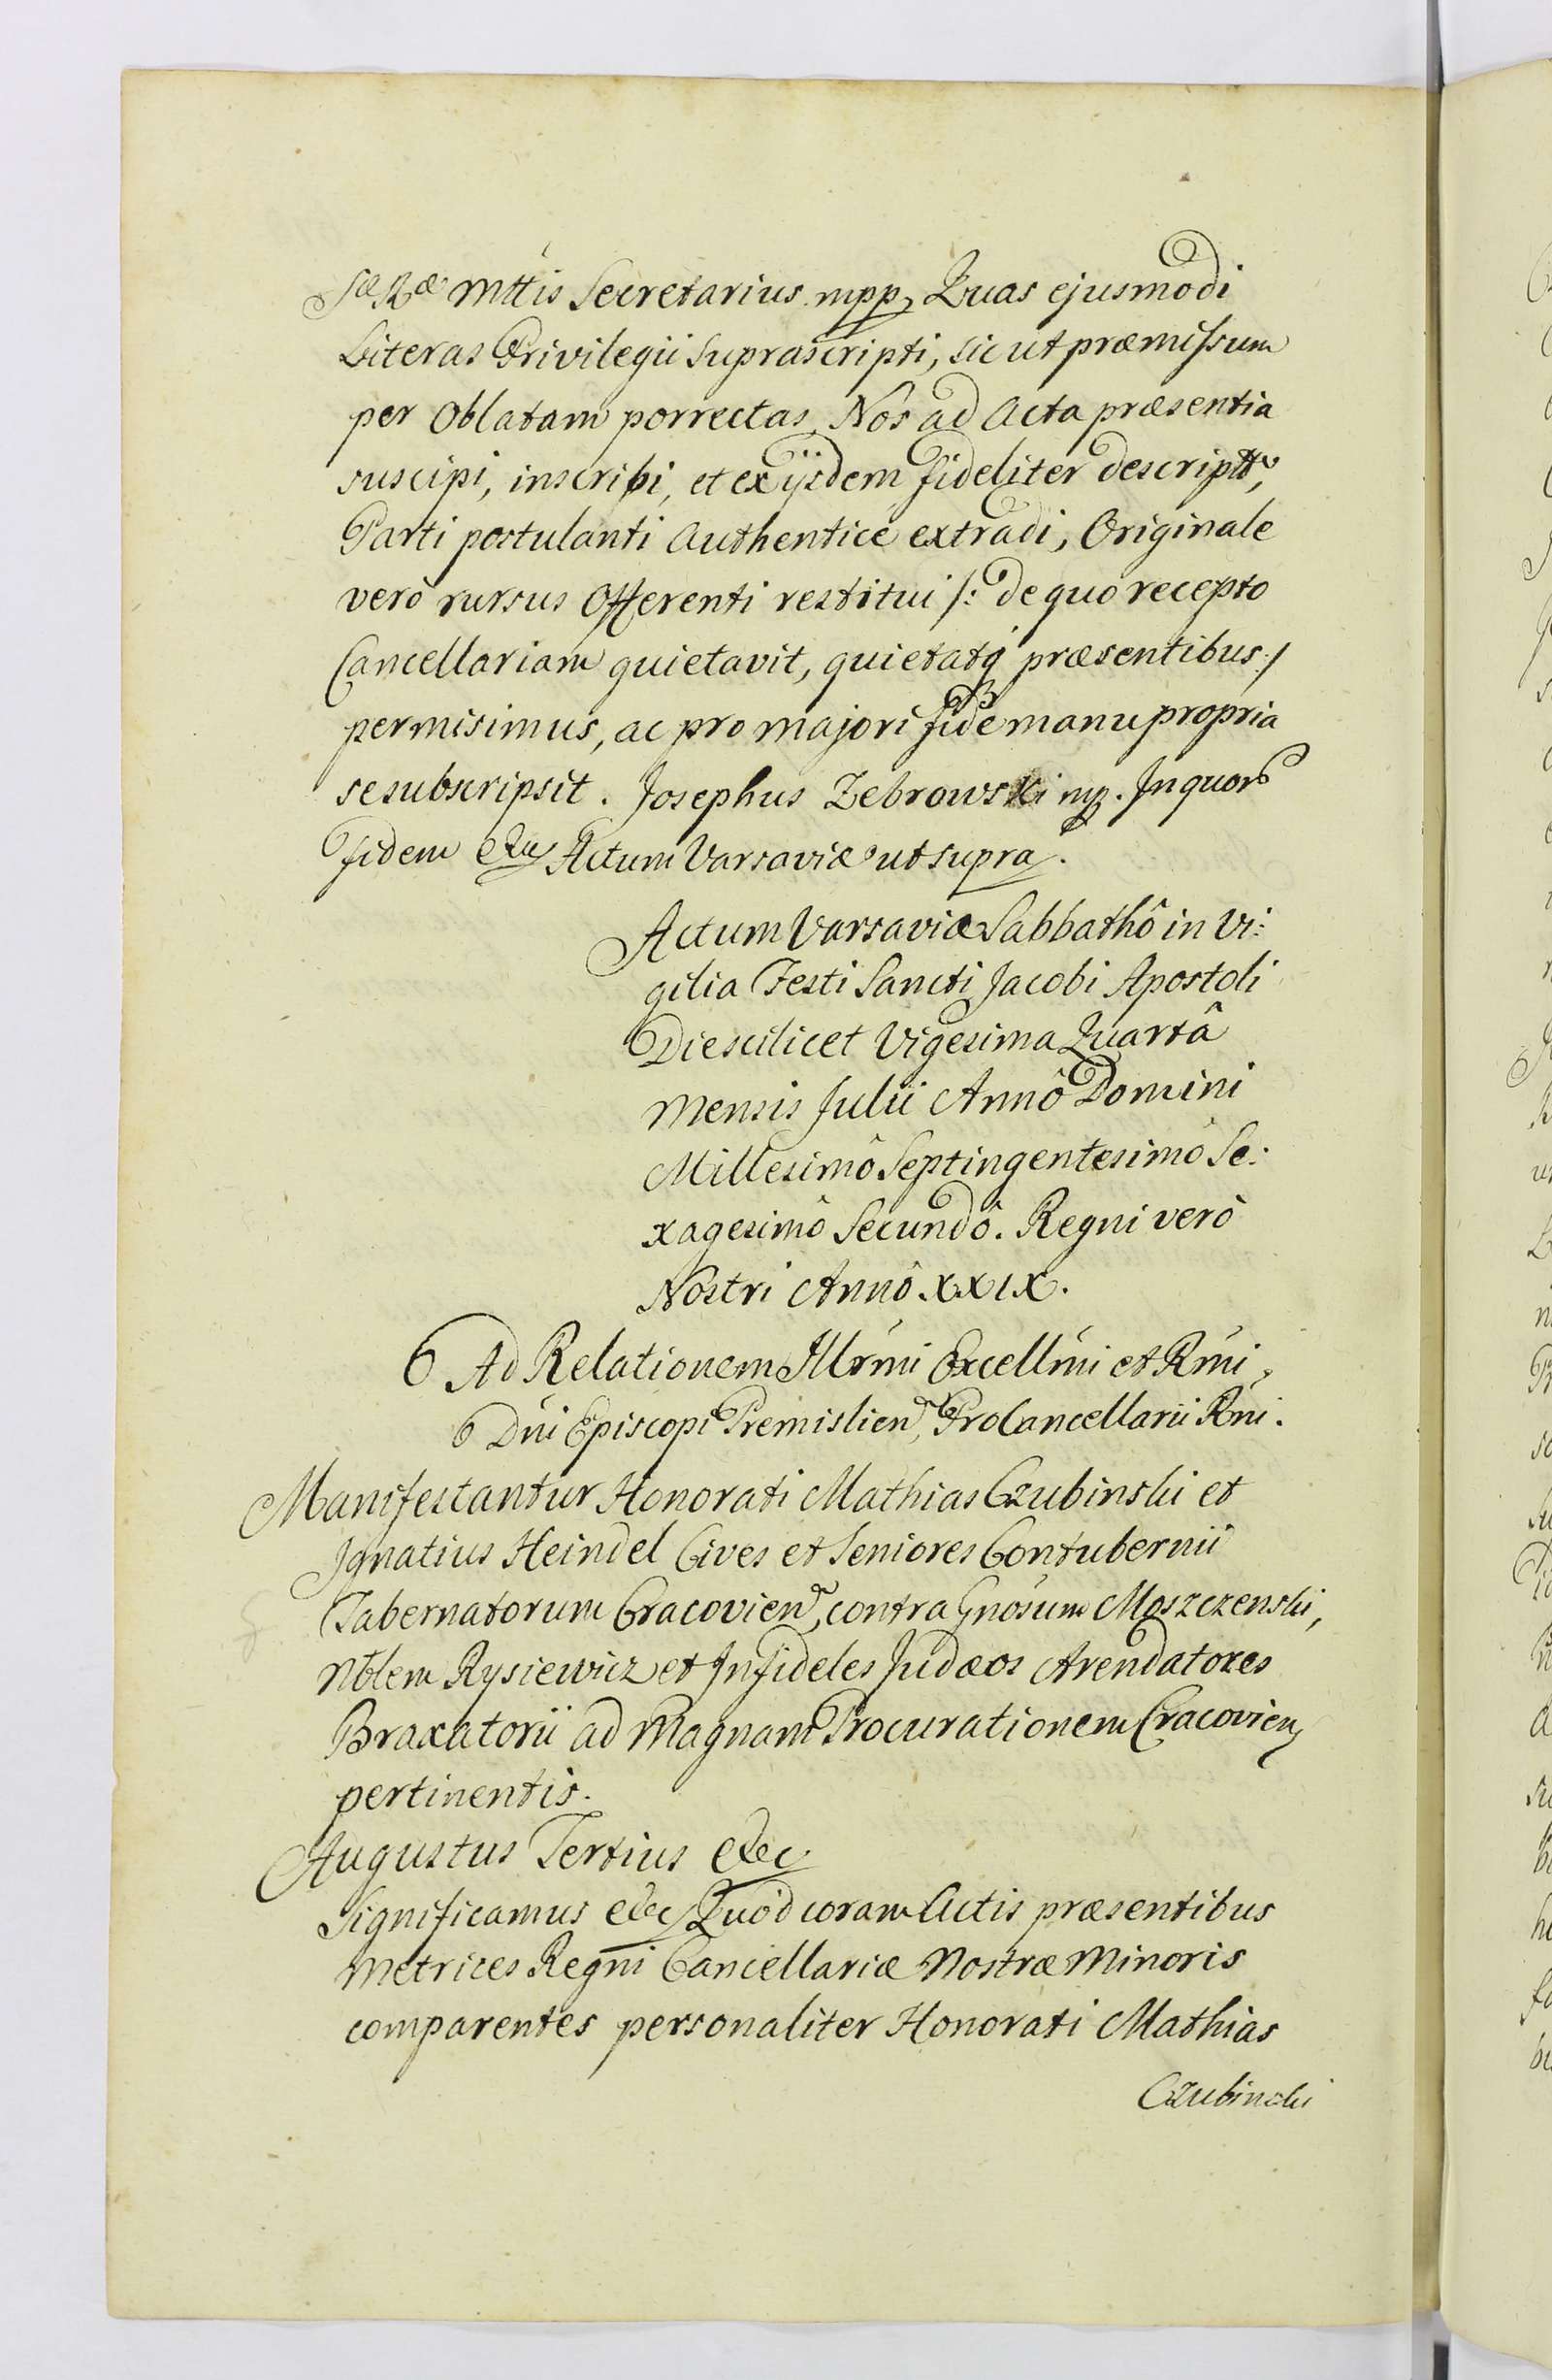 Sæ Ræ Mttis Secretarius mpp, Quas ejusmodi
Literas Privilegii Suprascripti, sicut præmissum
per Oblatam porrectas, Nos ad Acta præsentia
suscipi, inscribi, et ex ijsdem fideliter descriptt,
Parti postulanti Authenticè extradi, Originale
verò rursus Offerenti restitui /: de quo recepto
Cancellariam quietavit, quietatq præsentibus :/
permisimus, ac pro majori fide manu propria
se subscripsit. Josephus Zebrowski mp. In quor
fidem etc Actum Varsaviæ ut supra.
Actum Varsaviæ Sabbathô in Vi:
gilia Festi Sancti Jacobi Apostoli
Die scilicet Vigesima Quartâ
Mensis Julii Annô Domini
Millesimô Septingentesimô Se:
xagesimô Secundô. Regni verò
Nostri Annô XXIX.
Ad Relationem Illrmi Excellmi et Rmi
Dni Episcopi Premislien, ProCancellarii Rni.
Manifestantur Honorati Mathias Czubinski et
Ignatius Heindel Cives et Seniores Contubernii
Tabernatorum Cracovien, contra Gnosum Moszczenski,
Nblem Rysiewicz et Infideles Judæos Arendatores
Braxatorii ad Magnam Procurationem Cracovien
pertinentis.
Augustus Tertius etc
Significamus etc Quòd coram Actis præsentibus
Metrices Regni Cancellariæ Nostræ Minoris
comparentes personaliter Honorati Mathias
Czubinski